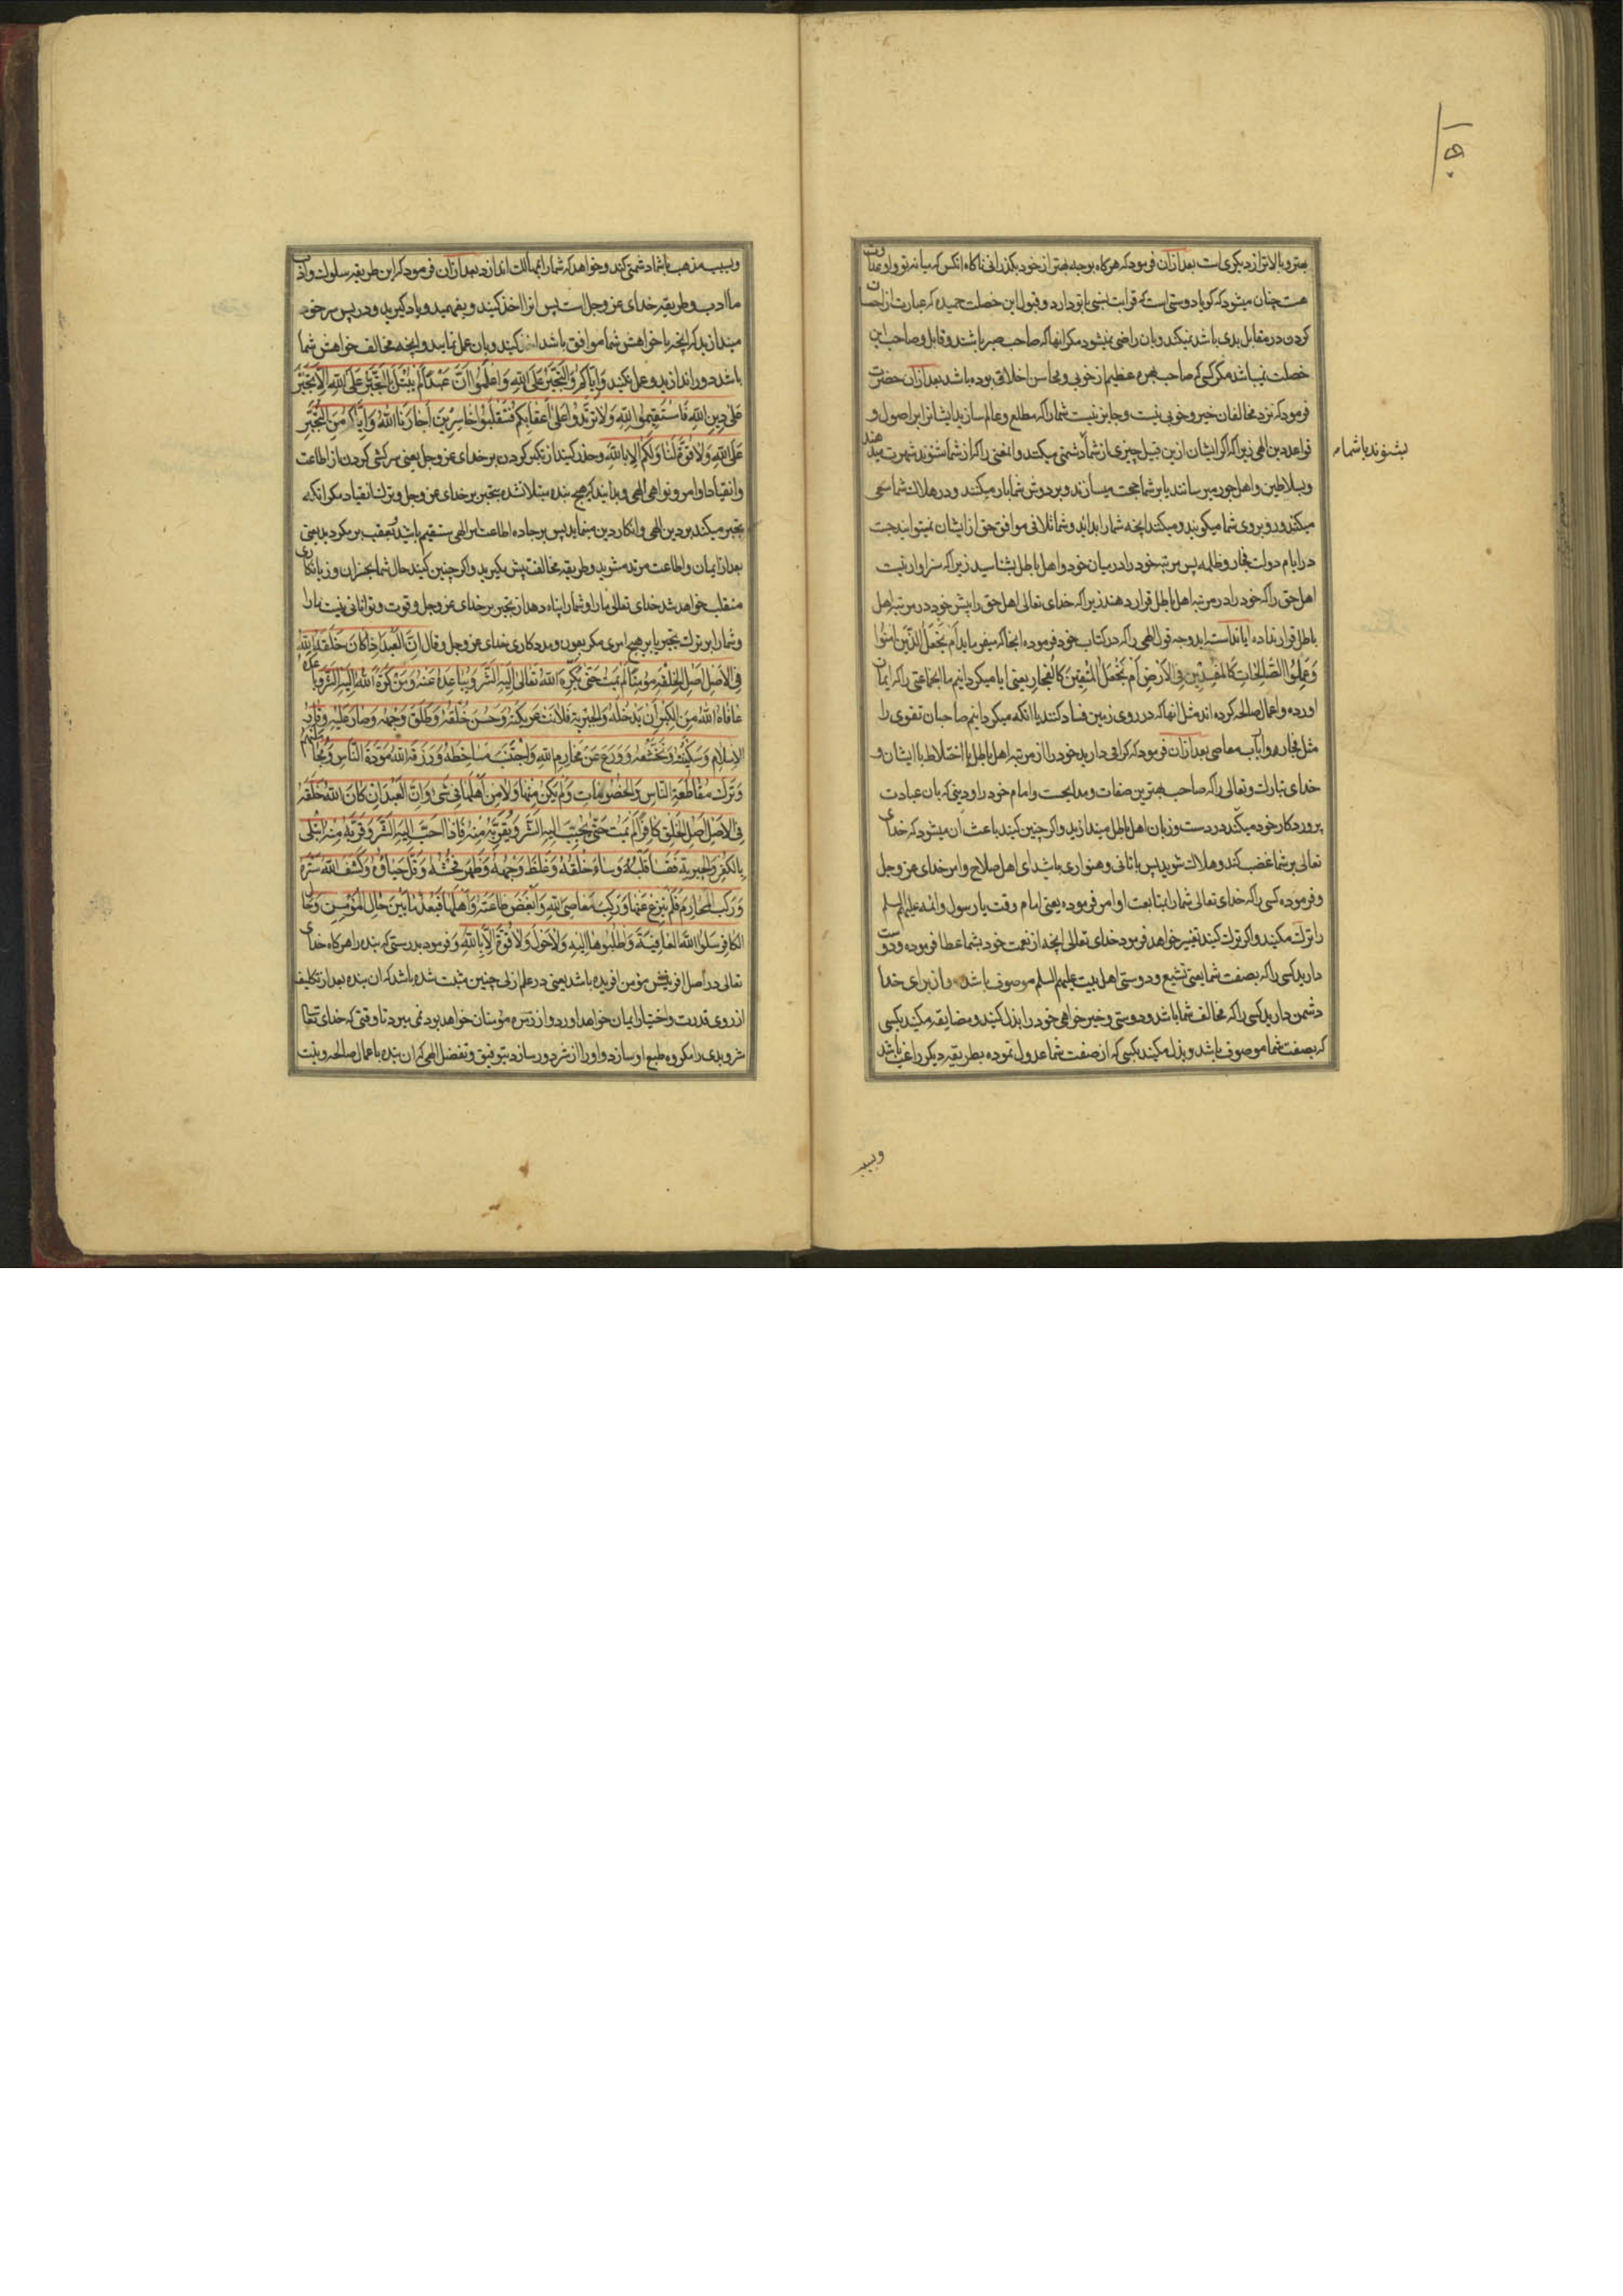 بهتر و بالاتر از دیکری است بعد ازان فرمود که هرکاه بوجه بهتر از خود بکذرانی ناکاه انکس که میانه تو و او عداوت
هست چنان میشود که کویا دوستی است که قرابت نسبی با تو دارد و قبول این خصلت حمیده که عبارت از احسان
کردن در مقابل بدی باشد نمیکند و بان راضی نمیشود مکر انها که صاحب صبر باشند و قابل و صاحب این
خصلت نمیباشد مکر کسی که صاحب بهره عظیم از خوبی و محاسن اخلاق بوده باشد بعد ازان حضرت
فرمود که نزد مخالفان خیر و خوبی نیست و جایز نیست شما را که مطلع و عالم سازید ایشانرا بر اصول و
قواعد دین الهی زیرا که اکر ایشان ازین قبیل چیزی از شما دشمنی میکنند و انمعنی را که از شما شنوند شهرت میدهند
بشنوند با شما
و بسلاطین و اهل جور میرسانند یا بر شما حجت میسازند و بر دوش شما بار میکنند و در هلاک شما سعی
میکنند و رو بروی شما میکویند و میکنند انچه شما را بد اید و شما تلافی موافق حق از ایشان نمیتوانید جست
در ایام دولت فجار و ظلمه پس مرتبه خود را در میان خود و اهل باطل بشناسید زیرا که سزاوار نیست
اهل حق را که خود را در مرتبه اهل باطل قرار دهند زیرا که خدای تعالی اهل حق را پیش خود در مرتبه اهل
باطل قرار نداده ایا ندانسته اید وجه قول الهی را که در کتاب خود فرموده انجا که میفرماید اَمْ نَجْعَلُ الَّذینَ امَنُوا
وَعَمِلُوا الصّٰلِحٰاتِ کَالْمُفْسِدینَ فِی الْاَرْضِ اَمْ نَجْعَلُ الْمُتَّقینَ کَالْفُجّارِ یعنی ایا میکردانیم ما انجماعتی را که ایمان
اورده و اعمال صالحه کرده اند مثل انها که در روی زمین فساد کنند یا انکه میکردانیم صاحبان تقوی را
مثل فجار و ارباب معاصی بعد ازان فرمود که کرامی دارید خود را از مرتبه اهل باطل با اختلاط با ایشان و
خدای تبارک و تعالی را که صاحب بهترین صفات و مدایحست و امام خود را و دینی که بان عبادت
پروردکار خود میکنید در دست و زبان اهل باطل میندازید و اکر چنین کنید باعث ان میشود که خدای
تعالی بر شما غضب کند و هلاک شوید پس بتانی و همواری باشید ای اهل صلاح و امر خدای عز و جل
و فرموده کسی را که خدای تعالی شما را بمتابعت او امر فرموده یعنی امام وقت یا رسول و ائمه علیهم السلم
را ترک مکنید و اکر ترک کنید تغییر خواهد فرمود خدای تعالی انچه از نعمت خود بشما عطا فرموده و دوست
دارید کسی را که بصفت شما یعنی تشیع و دوستی اهل بیت علیهم السلم موصوف باشد و از برای خدا
دشمن دارید کسی را که مخالف شما باشد و دوستی و خیر خواهی خود را بذل کنید و مضایقه مکنید بکسی
که بصفت شما موصوف باشد و بذل مکنید بکسی که از صفت شما عدول نموده بطریقه دیکر راغب باشد
وبسبب
و بسبب مذهب با شما دشمنی کند و خواهد که شما را بمهالک اندازد بعد ازان فرمود که این طریقه سلوک و اداب
ما ادب و طریقه خدای عز و جل است پس انرا اخذ کنید و بفهمید و یاد کیرید و در پس سر خود
میندازید که انچه با خواهش شما موافق باشد اخذ کنید و بان عمل نمایید و انچه مخالف خواهش شما
باشد دور اندازید و عمل نکنید وَاِیّاکُمْ وَالتَّجَبُّرَ عَلَی اللهِ وَاعْلَمُوا اَنَّ عَبْداً لَمْ یُبْتَلَ بِالتَّجَبُّرِ عَلَی اللهِ اِلّا تَجَبَّرَ
عَلٰی دینِ اللهِ فَاسْتَقیمُوا لِلّهِ وَلا تَرْتَدُّوا عَلٰی اَعْقابِکُمْ فَتَنْقَلِبُوا خاسِرینَ اَجارَنَا اللهُ وَاِیّاکُمْ مِنَ التَّجَبُّرِ
عَلَی اللهِ وَلا قُوَّةَ لَنا وَلَکُمْ اِلّا بِاللهِ و حذر کنید از تکبر کردن بر خدای عز و جل یعنی سرکشی کردن از اطاعت
و انقیاد اوامر و نواهی الهی و بدانید که هیچ بنده مبتلا نشده بتجبر بر خدای عز و جل و ترک انقیاد مکر انکه
تجبر میکند بر دین الهی و انکار دین مینماید پس بر جاده اطاعت امر الهی مستقیم باشید و بعقب برمکردید یعنی
بعد از ایمان و اطاعت مرتد مشوید و طریقه مخالفت پیش مکیرید و اکر چنین کنید حال شما بخسران و زیانکاری
منقلب خواهد شد خدای تعالی ما را و شما را پناه دهد از تجبر بر خدای عز و جل و قوت و توانائی نیست ما را
و شما را بر ترک تجبر یا بر هیچ امری مکر بعون و مددکاری خدای عز و جل و قال اِنَّ الْعَبْدَ اِذا کانَ خَلَقَهُ اللهُ
فِی الْاَصْلِ اَصْلِ الْخِلْقَةِ مُؤْمِناً لَمْ یَمُتْ حَتّٰی یُکَرِّهَ اللهُ تَعالٰی اِلَیْهِ الشَّرَّ وَیُباعِدَهُ عَنْهُ وَمَنْ کَرَّهَ اللهُ اِلَیْهِ الشَّرَّ وَباعَدَهُ
عافاهُ اللهُ مِنَ الْکِبْرِ اَنْ یَدْخُلَهُ وَالْجَبْرِیَّةِ فَلانَتْ عَریکَتُهُ وَحَسُنَ خُلْقُهُ وَطَلُقَ وَجْهُهُ وَصارَ عَلَیْهِ وَقارُ
الْاِسْلامِ وَسَکینَتُهُ وَتَخَشُّعُهُ وَوَرَعَ عَنْ مَحارِمِ اللهِ وَاجْتَنَبَ مَساخِطَهُ وَرَزَقَهُ اللهُ مَوَدَّةَ النّاسِ وَمُجامَلَتَهُمْ
وَتَرْکَ مُقاطَعَةِ النّاسِ وَالْخُصُوماتِ وَلَمْ یَکُنْ مِنْها وَلا مِنْ اَهْلِها فی شَیْءٍ وَاِنَّ الْعَبْدَ اِنْ کانَ اللهُ خَلَقَهُ
فِی الْاَصْلِ اَصْلِ الْخَلْقِ کافِراً لَمْ یَمُتْ حَتّٰی یُحَبِّبَ اِلَیْهِ الشَّرَّ وَیُقَرِّبَهُ مِنْهُ فَاِذا حَبَّبَ اِلَیْهِ الشَّرَّ وَقَرَّبَهُ مِنْهُ ابْتُلِیَ
بِالْکِبْرِ وَالْجَبْرِیَّةِ فَقَسا قَلْبُهُ وَساءَ خُلْقُهُ وَغَلُظَ وَجْهُهُ وَظَهَرَ فُحْشُهُ وَقَلَّ حَیاؤُهُ وَکَشَفَ اللهُ سِتْرَهُ
وَرَکِبَ الْمَحارِمَ فَلَمْ یَنْزِعْ عَنْها وَرَکِبَ مَعاصِیَ اللهِ وَاَبْغَضَ طاعَتَهُ وَاَهْلَها فَبُعْدٌ ما بَیْنَ حالِ الْمُؤْمِنِ وَحالِ
الْکافِرِ سَلُوا اللهَ الْعافِیَةَ وَاطْلُبُوها اِلَیْهِ وَلا حَوْلَ وَلا قُوَّةَ اِلّا بِاللهِ و فرمود بدرستی که بنده را هرکاه خدای
تعالی در اصل افرینش مؤمن افریده باشد یعنی در علم ازلی چنین مثبت شده باشد که ان بنده بعد از تکلیف
از روی قدرت و اختیار ایمان خواهد اورد و از زمره مؤمنان خواهد بود نمی میرد تا وقتی که خدای تعالی
شر و بدی را مکروه طبع او سازد و او را از شر دور سازد بتوفیق و تفضل الهی که ان بنده باعمال صالحه و نیت